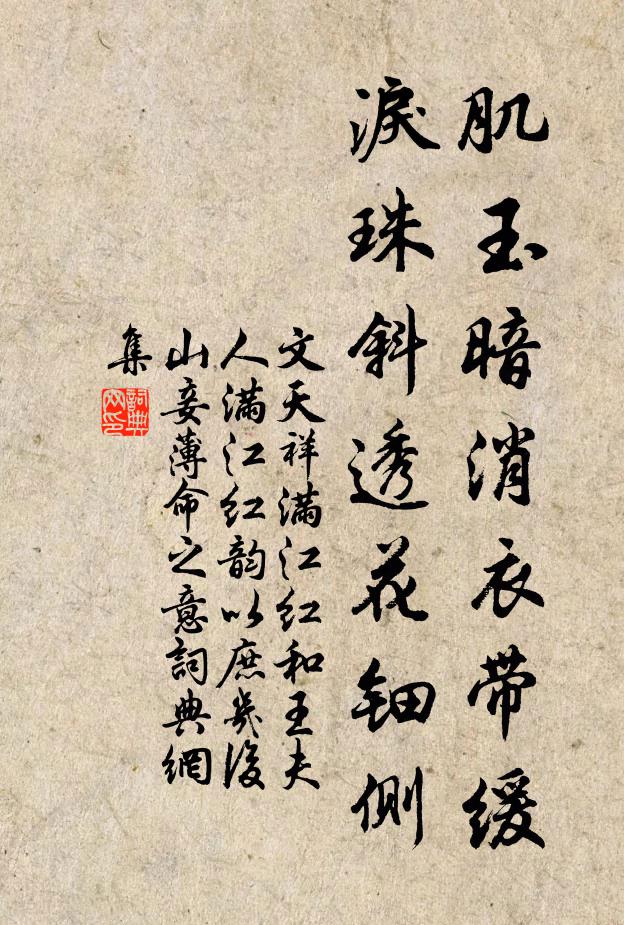 肌玉暗消衣带缓
淚珠斜透花钿侧
文天祥满江红和王夫
人满江红韵以庶幾後
山妾薄命之意詞典網
集
詞典
网印